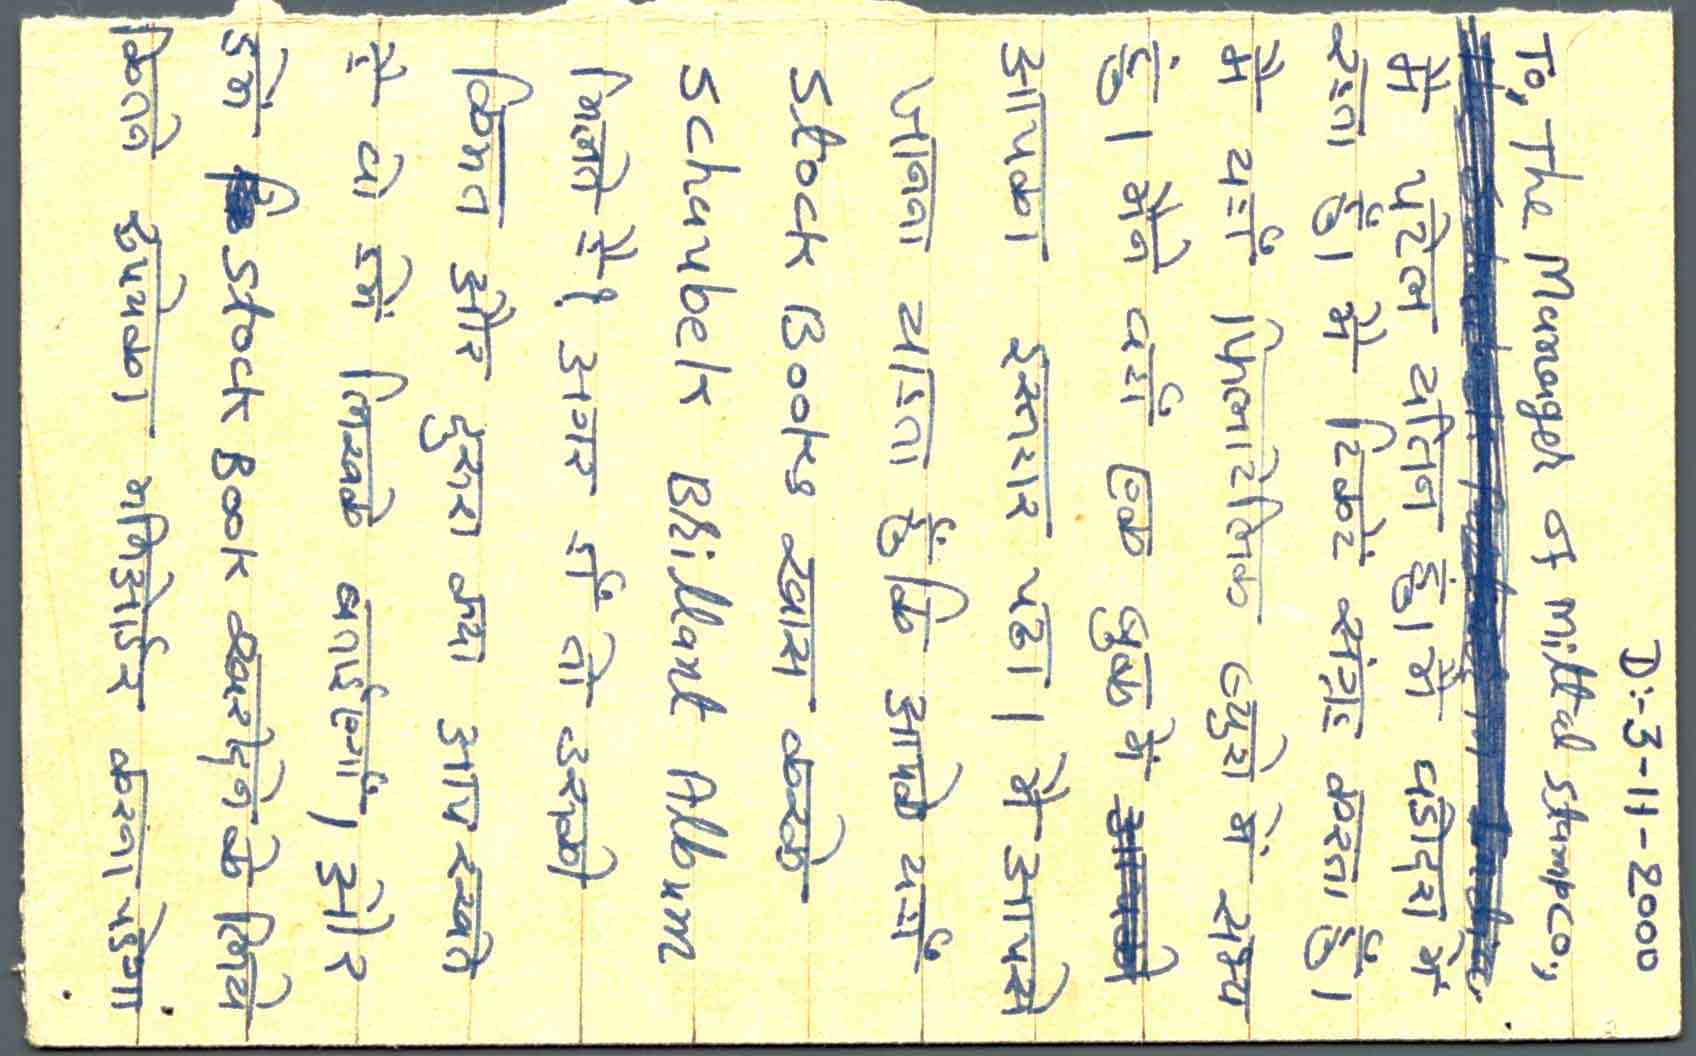 D:-3-11-2000
To, The Manager of Mittal stampco.,
मैं पटेल यतिन हुं। मैं वडोदरा में
रहता हुं। मैं टिकटे संग्रह करता हुं।
मैं यहाँ फिलाटेलिक ब्युरो में सभ्य
हुं। मैंने वहाँ एक बुक में
आपका इस्तहार पढा। मैं आपसे
जानना चाहता हुँ कि आपके यहाँ
Stock Books खास करके
Schaubek Brillant Album
मिलते है? अगर हाँ तो उसकी
किमत और दुसरा क्या आप रखते
है वो हमें लिखके बताईएगाँ, और
हमें Stock Book खरीदने के लिये
कितने रुपयेका मनिओर्डर करना पडेगा